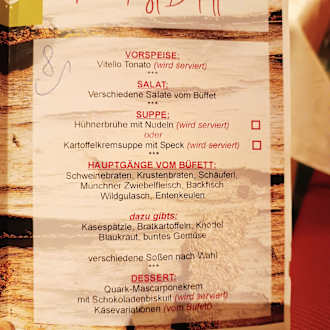 VORSPEISE:
Vitello Tonato (wird serviert)
***
SALAT:
Verschiedene Salate vom Büffet
***
SUPPE:
Hühnerbrühe mit Nudeln (wird serviert)
oder
Kartoffelkremsuppe mit Speck (wird serviert)
***
HAUPTGÄNGE VOM BÜFETT:
Schweinebraten, Krustenbraten, Schäuferl,
Münchner Zwiebelfleisch, Backfisch
Wildgulasch, Entenkeulen
dazu gibts:
Käsespätzle, Bratkartoffeln, Knödel
Blaukraut, buntes Gemüse
verschiedene Soßen nach Wahl
***
DESSERT:
Quark-Mascarponekrem
mit Schokoladenbiskuit (wird serviert)
Käsevariationen (vom Büfett)